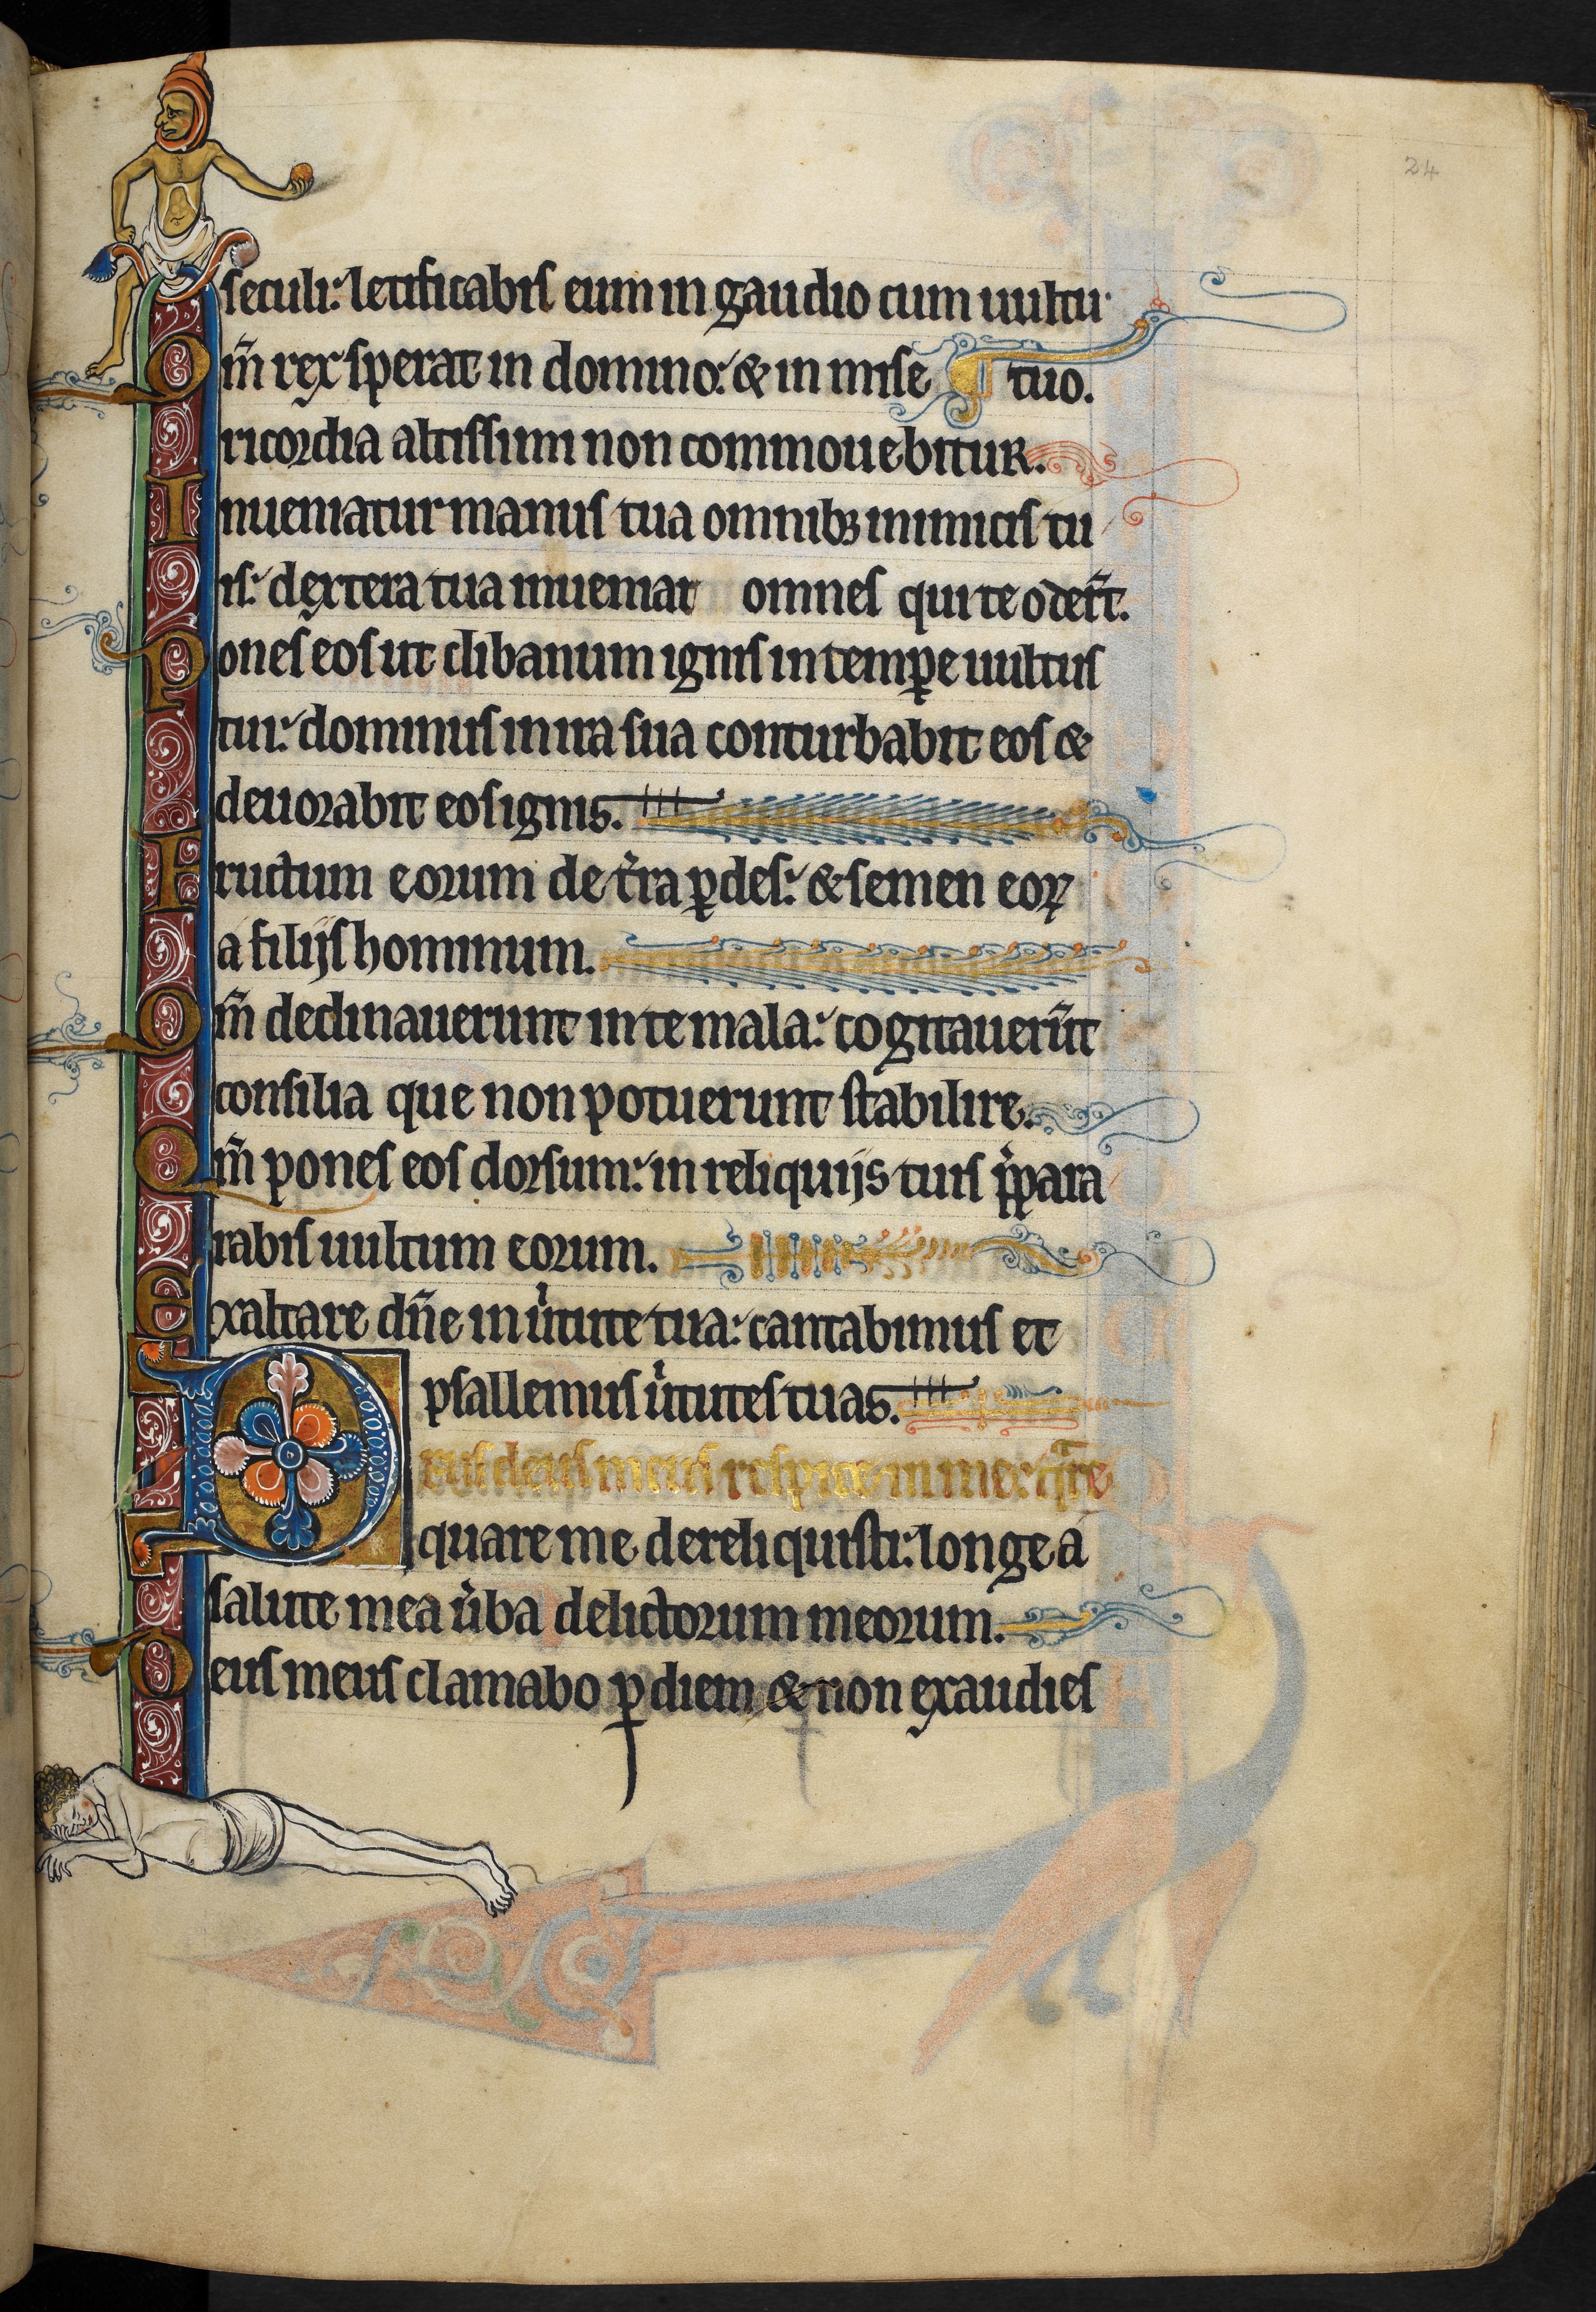 24
seculi: letificabis eum in gaudio cum uultu
Om̄ rex sperat in domino: & in mise ¶ tuo.
ricordia altissimi non commouebitur.
Inueniatur manus tua omnibꝫ inimicis tu
is: dextera tua inueniat omnes qui te oder̄t.
Pones eos ut clibanum ignis in temꝑe uultus
tui: dominus in ira sua conturbabit eos &
deuorabit eos ignis.
Fructum eorum de t̾ra ꝑdes: & semen eoꝝ
a filijs hominum.
Qm̄ declinauerunt in te mala: cogitauerūt
consilia que non potuerunt stabilire.
Qm̄ pones eos dorsum: in reliquijs tuis p̾para
rabis uultum eorum.
Exaltare dn̄e in u̾tute tua: cantabimus et
psallemus u̾tutes tuas.
Deus deus meus respice in me:
quare me dereliquisti: longe a
salute mea u̾ba delictorum meorum.
Deus meus clamabo ꝑ diem & non exaudies